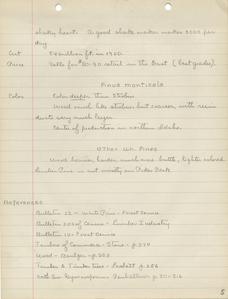 shaky heart. A good shake maker makes 2000 per
day.
Cut
in 1900.
Price Sells for $80-90 retail in the East (best grades).
Pinus monticola
Color Color deeper than Strobus
Wood much like strobus but coarser, with resin
ducts very much larger
Centre of production in northern Idaho.
Other Wh. Pines
Wood heavier, harder, much more brittle, lighter colored.
Limber Pine is cut mostly on Pikes Peak
References
Bulletin 22 - White Pine - Forest Service
Bulletin 203 of Census - Lumber Industry
Bulletin 10 - Forest Service
Timbers of Commerce - Stone - p.
Wood - Boulger - p.
Timber & Timber trees - Laslett p.
5